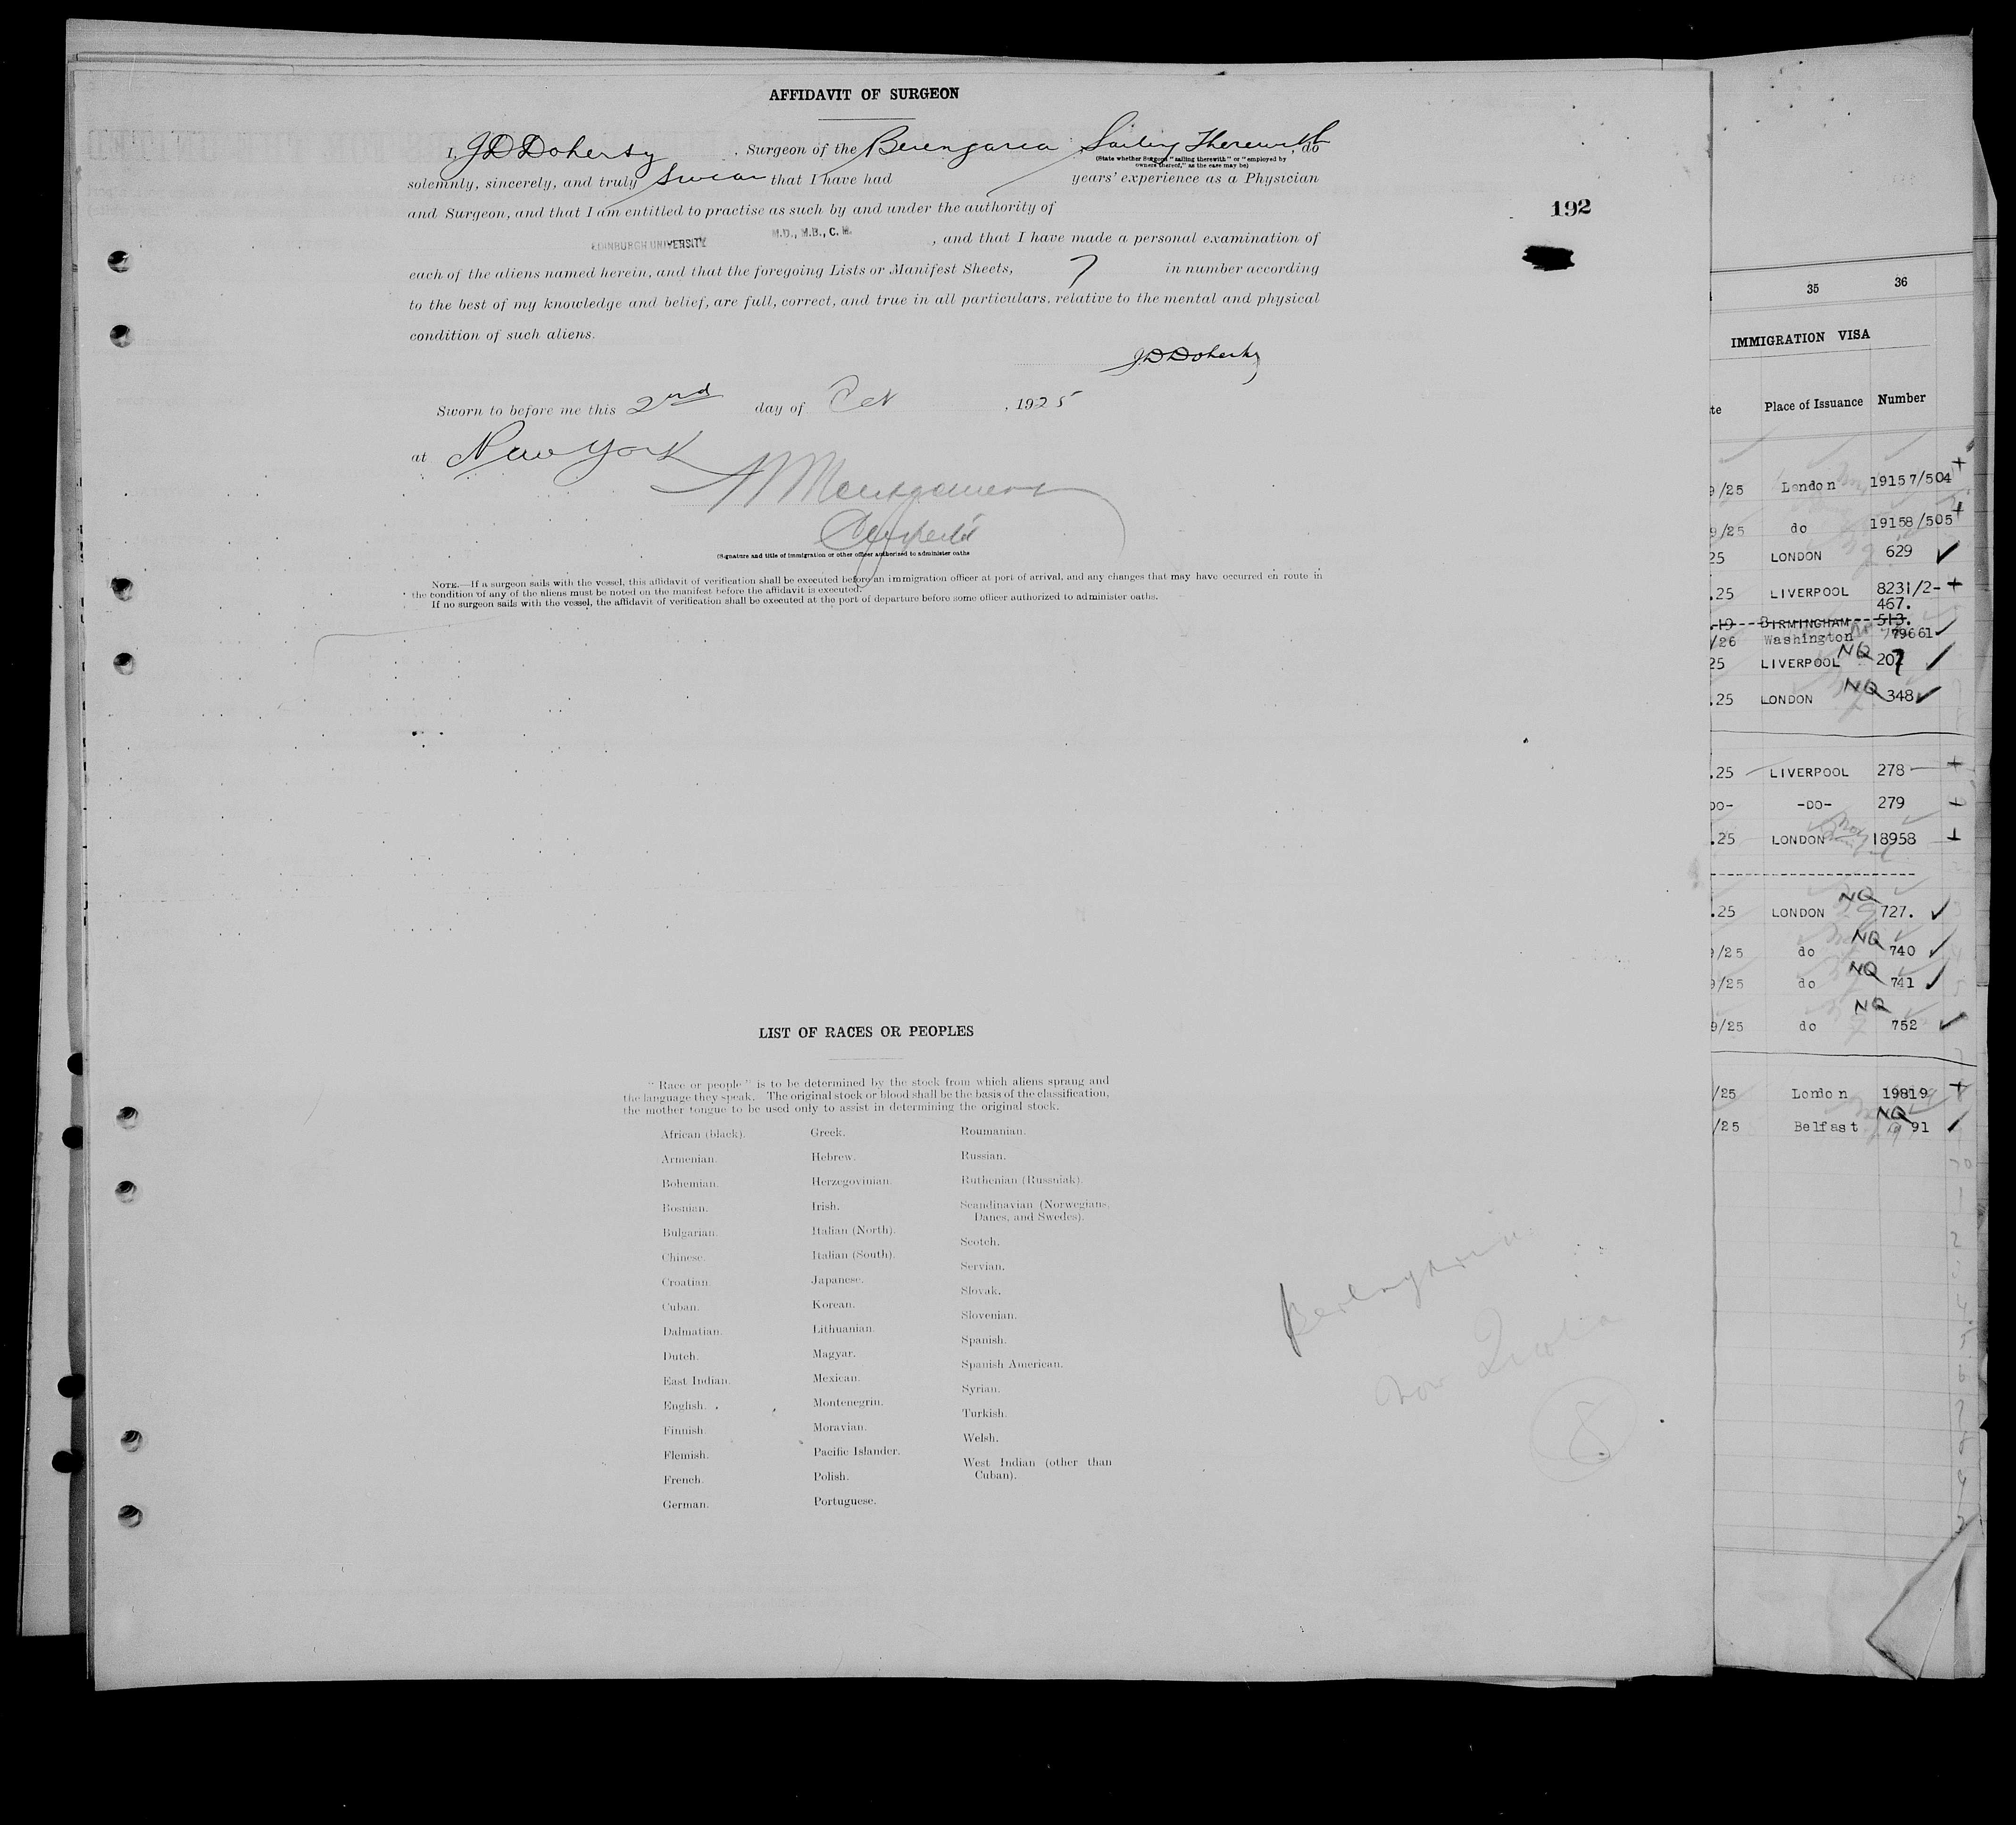 AFFIDAVIT OF SURGEON
I, J D Doherty , Surgeon of the Berengaria Sailing Therewith , do
(State whether Surgeon "sailing therewith" or "employed by
owners thereof," as the case may be)
solemnly, sincerely, and truly swear that I have had years' experience as a Physician
and Surgeon, and that I am entitled to practise as such by and under the authority of
EDINBURGH UNIVERSITY M.D., M.B., C. M. , and that I have made a personal examination of
each of the aliens named herein, and that the foregoing Lists or Manifest Sheets, 7 in number according
to the best of my knowledge and belief, are full, correct, and true in all particulars, relative to the mental and physical
condition of such aliens.
J.D Doherty
Sworn to before me this 2nd day of Oct , 1925
at New York
Montgomery
(Signature and title of immigration or other officer authorised to administer oaths
NOTE.—If a surgeon sails with the vessel, this affidavit of verification shall be executed before an immigration officer at port of arrival, and any changes that may have occurred en route in
the condition of any of the aliens must be noted on the manifest before the affidavit is executed.
If no surgeon sails with the vessel, the affidavit of verification shall be executed at the port of departure before some officer authorized to administer oaths.
192
LIST OF RACES OR PEOPLES
"Race or people" is to be determined by the stock from which aliens sprang and
the language they speak. The original stock or blood shall be the basis of the classification,
the mother tongue to be used only to assist in determining the original stock.
African (black).
Armenian.
Bohemian.
Bosnian.
Bulgarian.
Chinese.
Croatian.
Cuban.
Dalmatian.
Dutch.
East Indian.
English.
Finnish.
Flemish.
French.
German.
Greek.
Hebrew.
Herzegovinian.
Irish.
Italian (North).
Italian (South).
Japanese.
Korean.
Lithuanian.
Magyar.
Mexican.
Montenegrin.
Moravian.
Pacific Islander.
Polish.
Portuguese.
Roumanian.
Russian.
Ruthenian (Russniak).
Scandinavian (Norwegians,
Danes, and Swedes).
Scotch.
Servian.
Slovak.
Slovenian.
Spanish.
Spanish American.
Syrian.
Turkish.
Welsh.
West Indian (other than
Cuban).
8
35 36
IMMIGRATION VISA
Place of Issuance Number
9/25 London 19157/504 +
9/25 do 19158/505 +
25 LONDON 629 ✓
.25 LIVERPOOL 8231/2- +
467.
.19 BIRMINGHAM 513.
/26 Washington 79661 ✓
25 LIVERPOOL NQ 207 ✓
.25 LONDON NQ 348 ✓
.25 LIVERPOOL 278 +
DO- -DO- 279 +
.25 LONDON 18958 +
.25 LONDON NQ 727. ✓
9/25 do NQ 740 ✓
9/25 do NQ 741 ✓
9/25 do NQ 752 ✓
/25 London 19819 +
/25 Belfast NQ 91 ✓